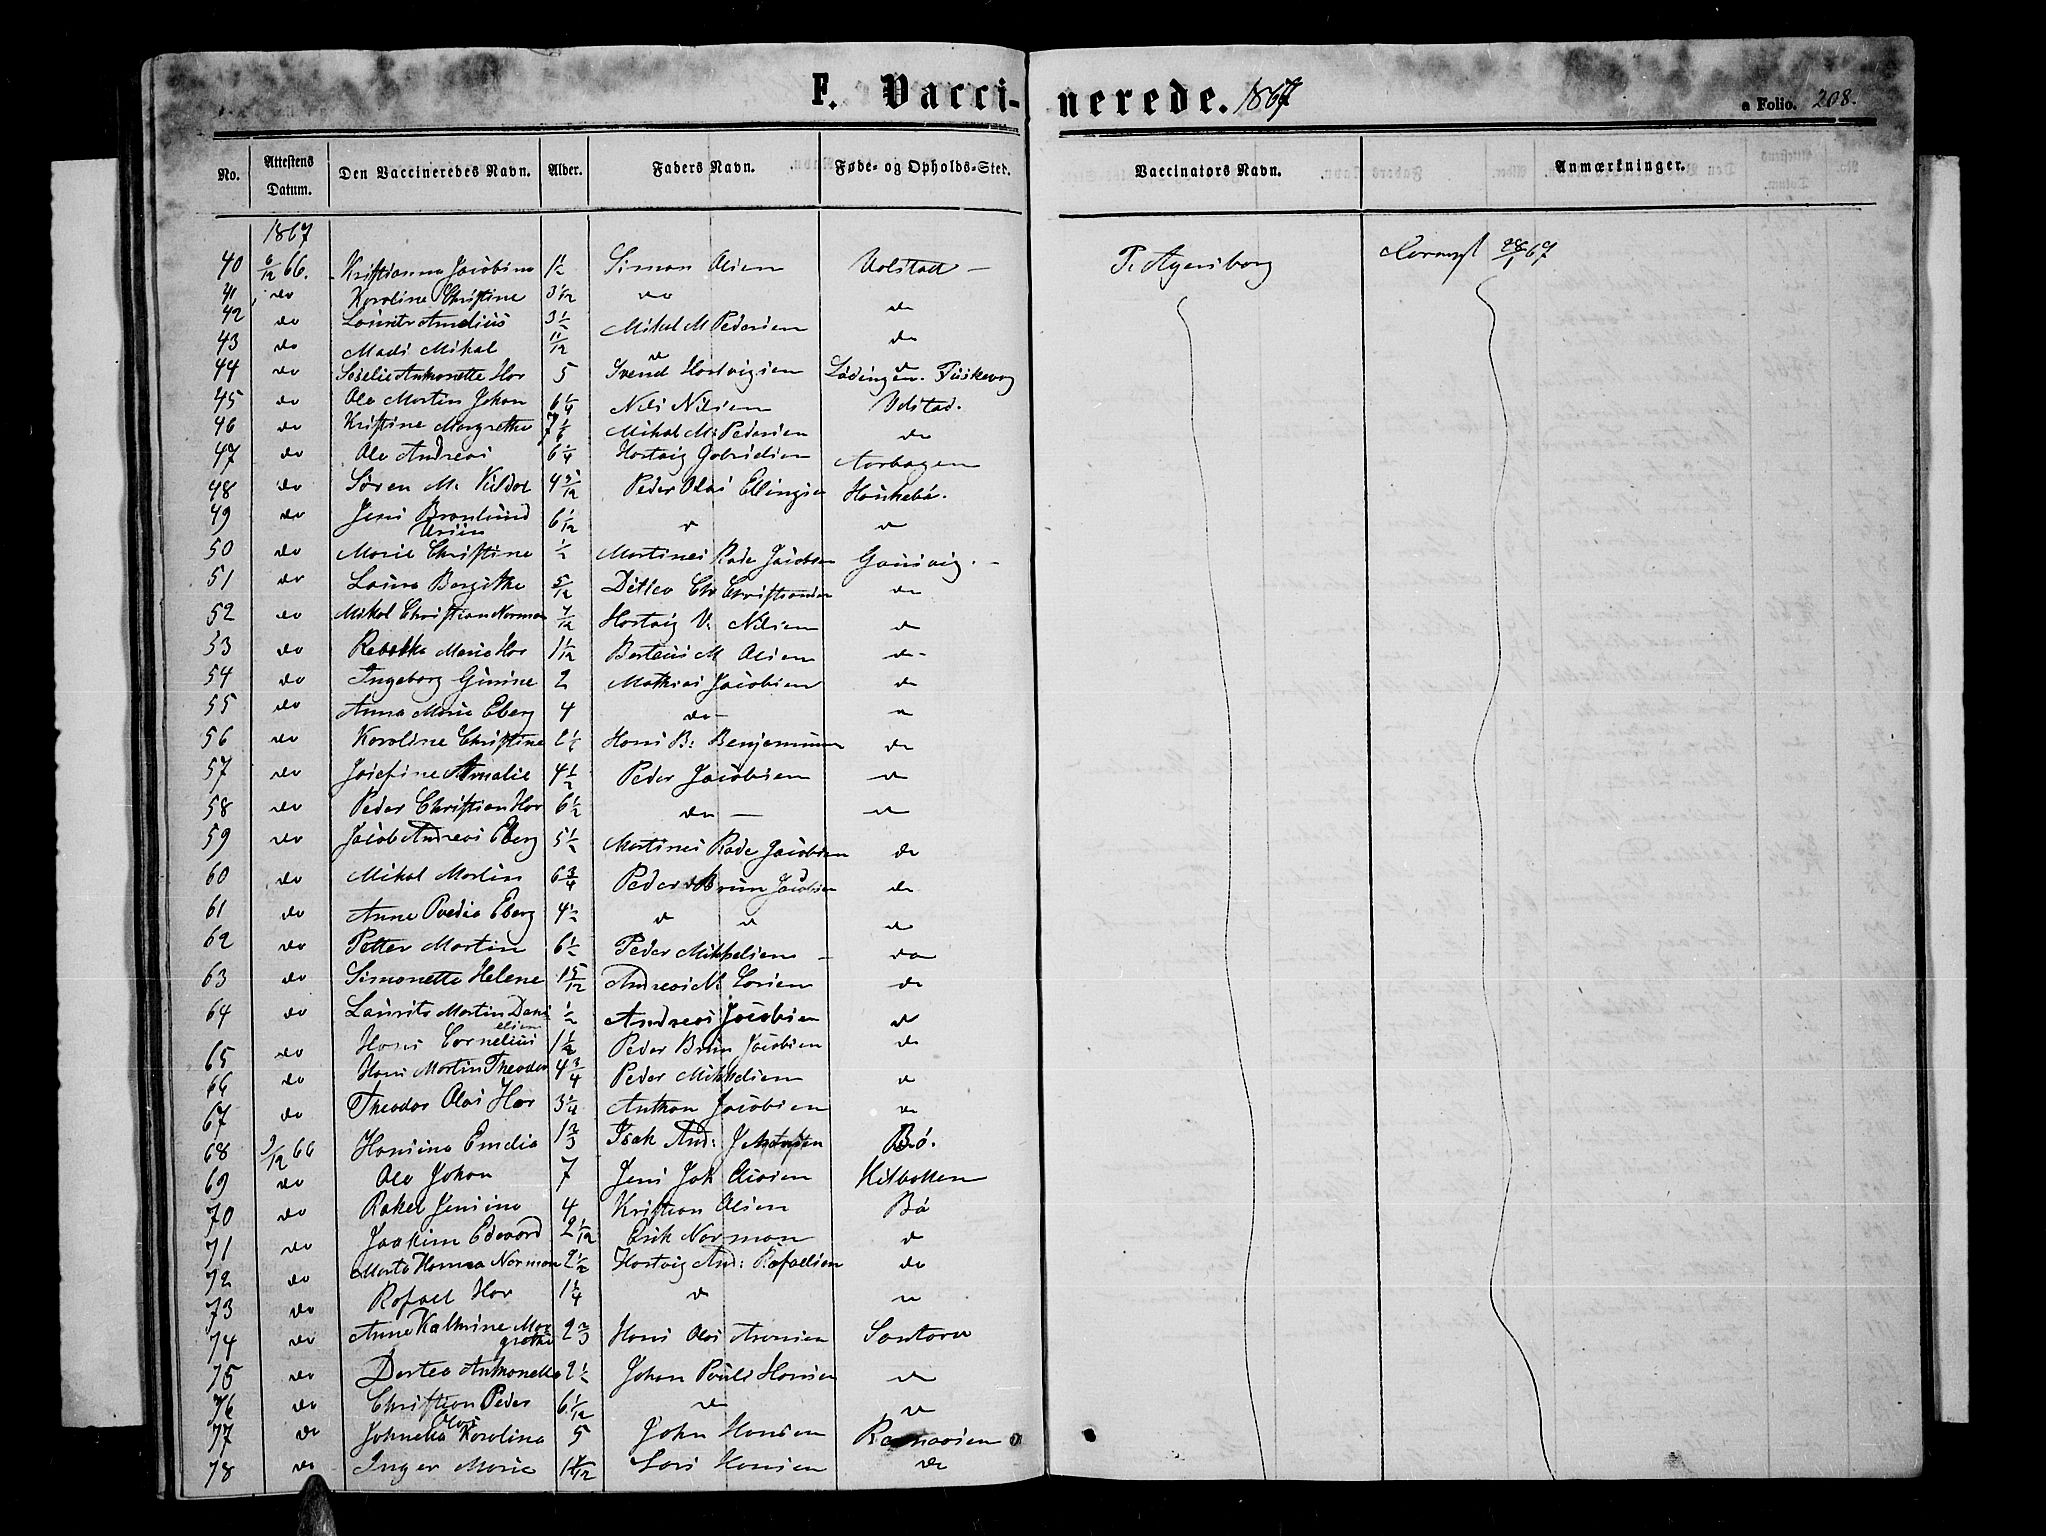 F. Vaccinerede. 1867
a Folio. 208.
No. Attestens Datum. Den Vaccineredes Navn. Alder. Faders Navn. Føde- og Opholds-Sted. Vaccinators Navn. Anmærkninger.
1867
40 6/12 66. Kristianna Jacobine 1 1/2 Simon Olsen Volstad
41 do Karoline Christine 3 1/12 do do
42 do Laurits Amelius 3 1/2 Mikal M Pedersen do
43 do Mads Mikal 11/12 do do
44 do Antonette Har 5 Svend Hartvigsen Lødingen.
45 do Ole Martin Johan 6 1/4 Nils Nilsen Volstad.
46 do Kristine Margrethe 7 1/6 Mikal M. Pedersen do
47 do Ole Andreas 6 1/4 Hartvig Gabrielsen Aarhagen
48 do Søren M. 4 5/12 Peder Olai Ellingsen
49 do Jens 6 1/12 do do
50 do Marie Christine 1/2 Martines Rade Jacobsen
51 do Laura Bergitte 5/12 Ditlev Chr Christiansen do
52 do Mikal Christian Norman 7/12 Hartvig V. Nilsen do
53 do Rebekka Marie Har 1 1/12 M Olsen do
54 do Ingeborg 2 Mathias Jacobsen do
55 do Anna Marie Eberg 4 do do
56 do Karoline Christine 2 1/2 Hans B. Benjaminsen do
57 do Josefine Amalie 4 1/2 Peder Jacobsen do
58 do Peder Christian Har 6 1/2 do do
59 do Jacob Andreas Eberg 5 1/2 Martines Rade Jacobsen do
60 do Mikal Martin 6 3/4 Peder Brun Jacobsen do
61 do Anne Eberg 4 1/2 do do do
62 do Petter Martin 6 1/2 Peder Mikkelsen do
63 do Simonette Helene 1 5/12 Andreas N. Larsen do
64 do Laurits Martin Danielsen 1/2 Andreas Jacobsen do
65 do Hans Cornelius 1 1/2 Peder Brun Jacobsen do
66 do Hans Martin Theodor 4 3/4 Peder Mikkelsen do
67 do Theodor Olai Har 3 1/4 Anthon Jacobsen do
68 3/12 66 Hansine Emelie 1 2/3 Isak And: Bø.
69 do Ole Johan 7 Jens Joh Kilbotten
70 do Rakel Jensine 4 Kristian Olsen Bø
71 do Joakim Edevard 2 1/12 Erik Norman do
72 do Hanna Norman 2 1/2 Hartvig And: Rafaelsen do
73 do Rafael Har 1 1/4 do do
74 do Anne Kathrine Margrethe 2 2/3 Hans Olai Aronsen Santorv
75 do Dortea Antonette 2 1/2 Johan Pauls Hansen do
76 do Christian Peder Olai 6 1/12 do do
77 do Karolina 5 John Hansen
78 do Inger Marie Lars Hansen do
28/1 67